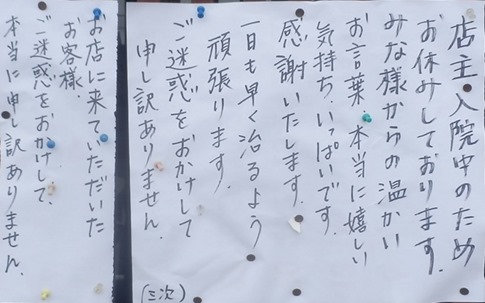 店主入院中のため
お休みしております.
みな様からの温かい
お言葉.本当に嬉しい
気持ち.いっぱいです.
感謝いたします.
一日も早く治るよう
頑張ります.
ご迷惑をおかけして
申し訳ありません.
(三次)
お店に来ていただいた
お客様.
ご迷惑をおかけして.
本当に申し訳ありません.